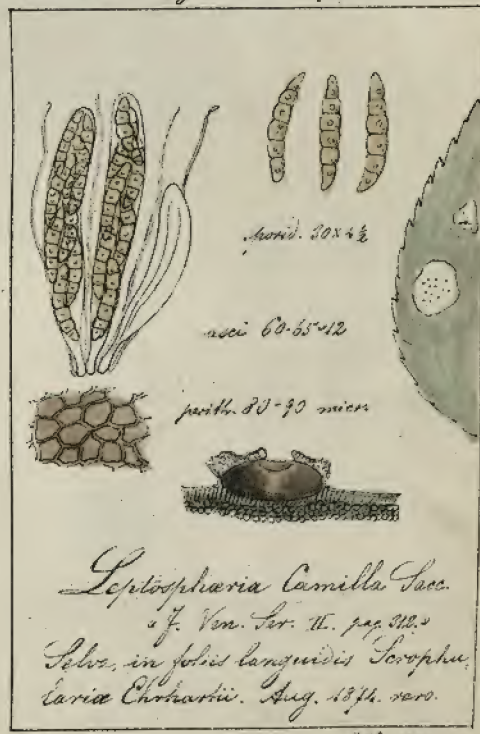 sporid. 30x4½
asci 60-65=12
perith. 80-90 micr.
Leptosphæria Camilla Sacc.
F. Ven. Ser. II. pag. 312.
Selva, in foliis languidis Scrophu,
lariæ Ehrhartii. Aug. 1874. raro.